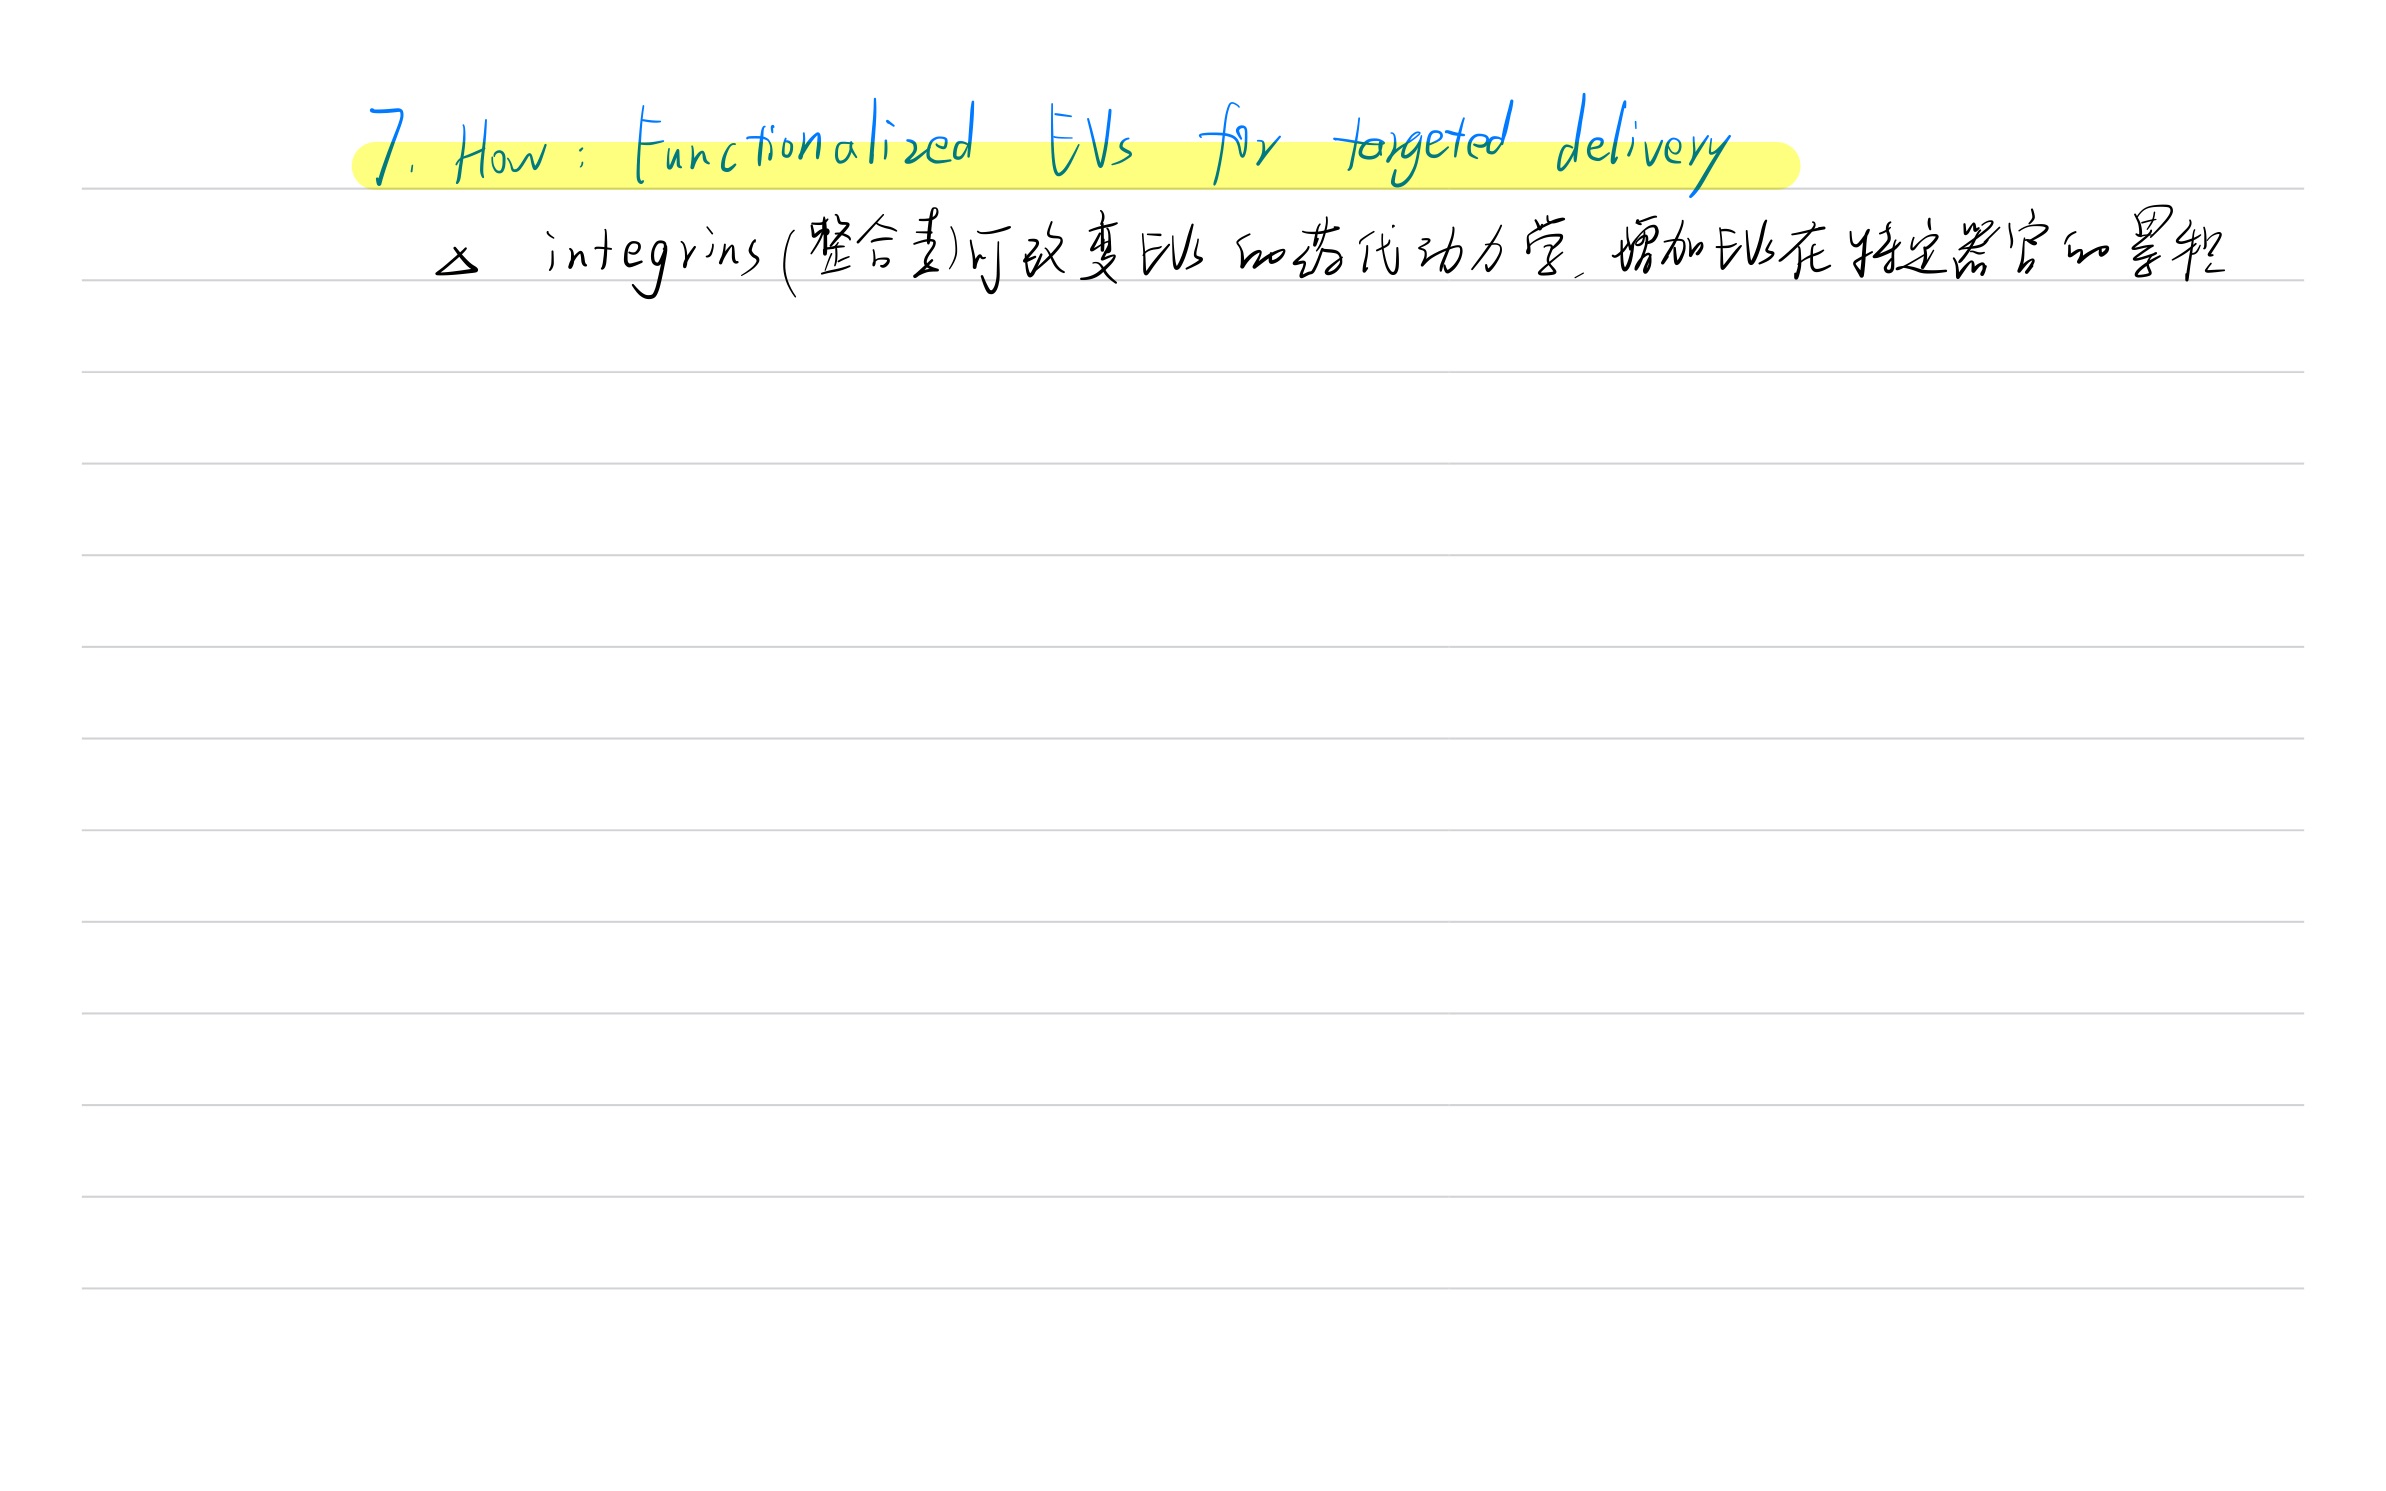 7. How: Functionalized EVs for targeted delivery
△ integrins(整合素)可改变EVs的药代动力学.增加EVs在特定器官的累积